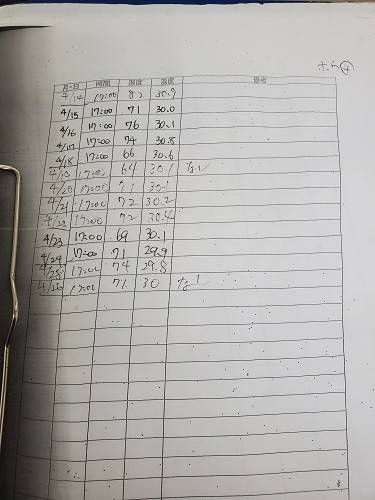 月・日 時間 湿度 温度 備考
4/14 17:00 82 30.9
4/15 17:00 71 30.0
4/16 17:00 76 30.1
4/17 17:00 74 30.8
4/18 17:00 66 30.6
4/19 17:00 64 30.1 なし
4/20 17:00 71 30.1
4/21 17:00 72 30.2
4/22 17:00 72 30.4
4/23 17:00 69 30.1
4/24 17:00 71 29.9
4/25 17:00 74 29.8
4/26 17:00 71 30 なし